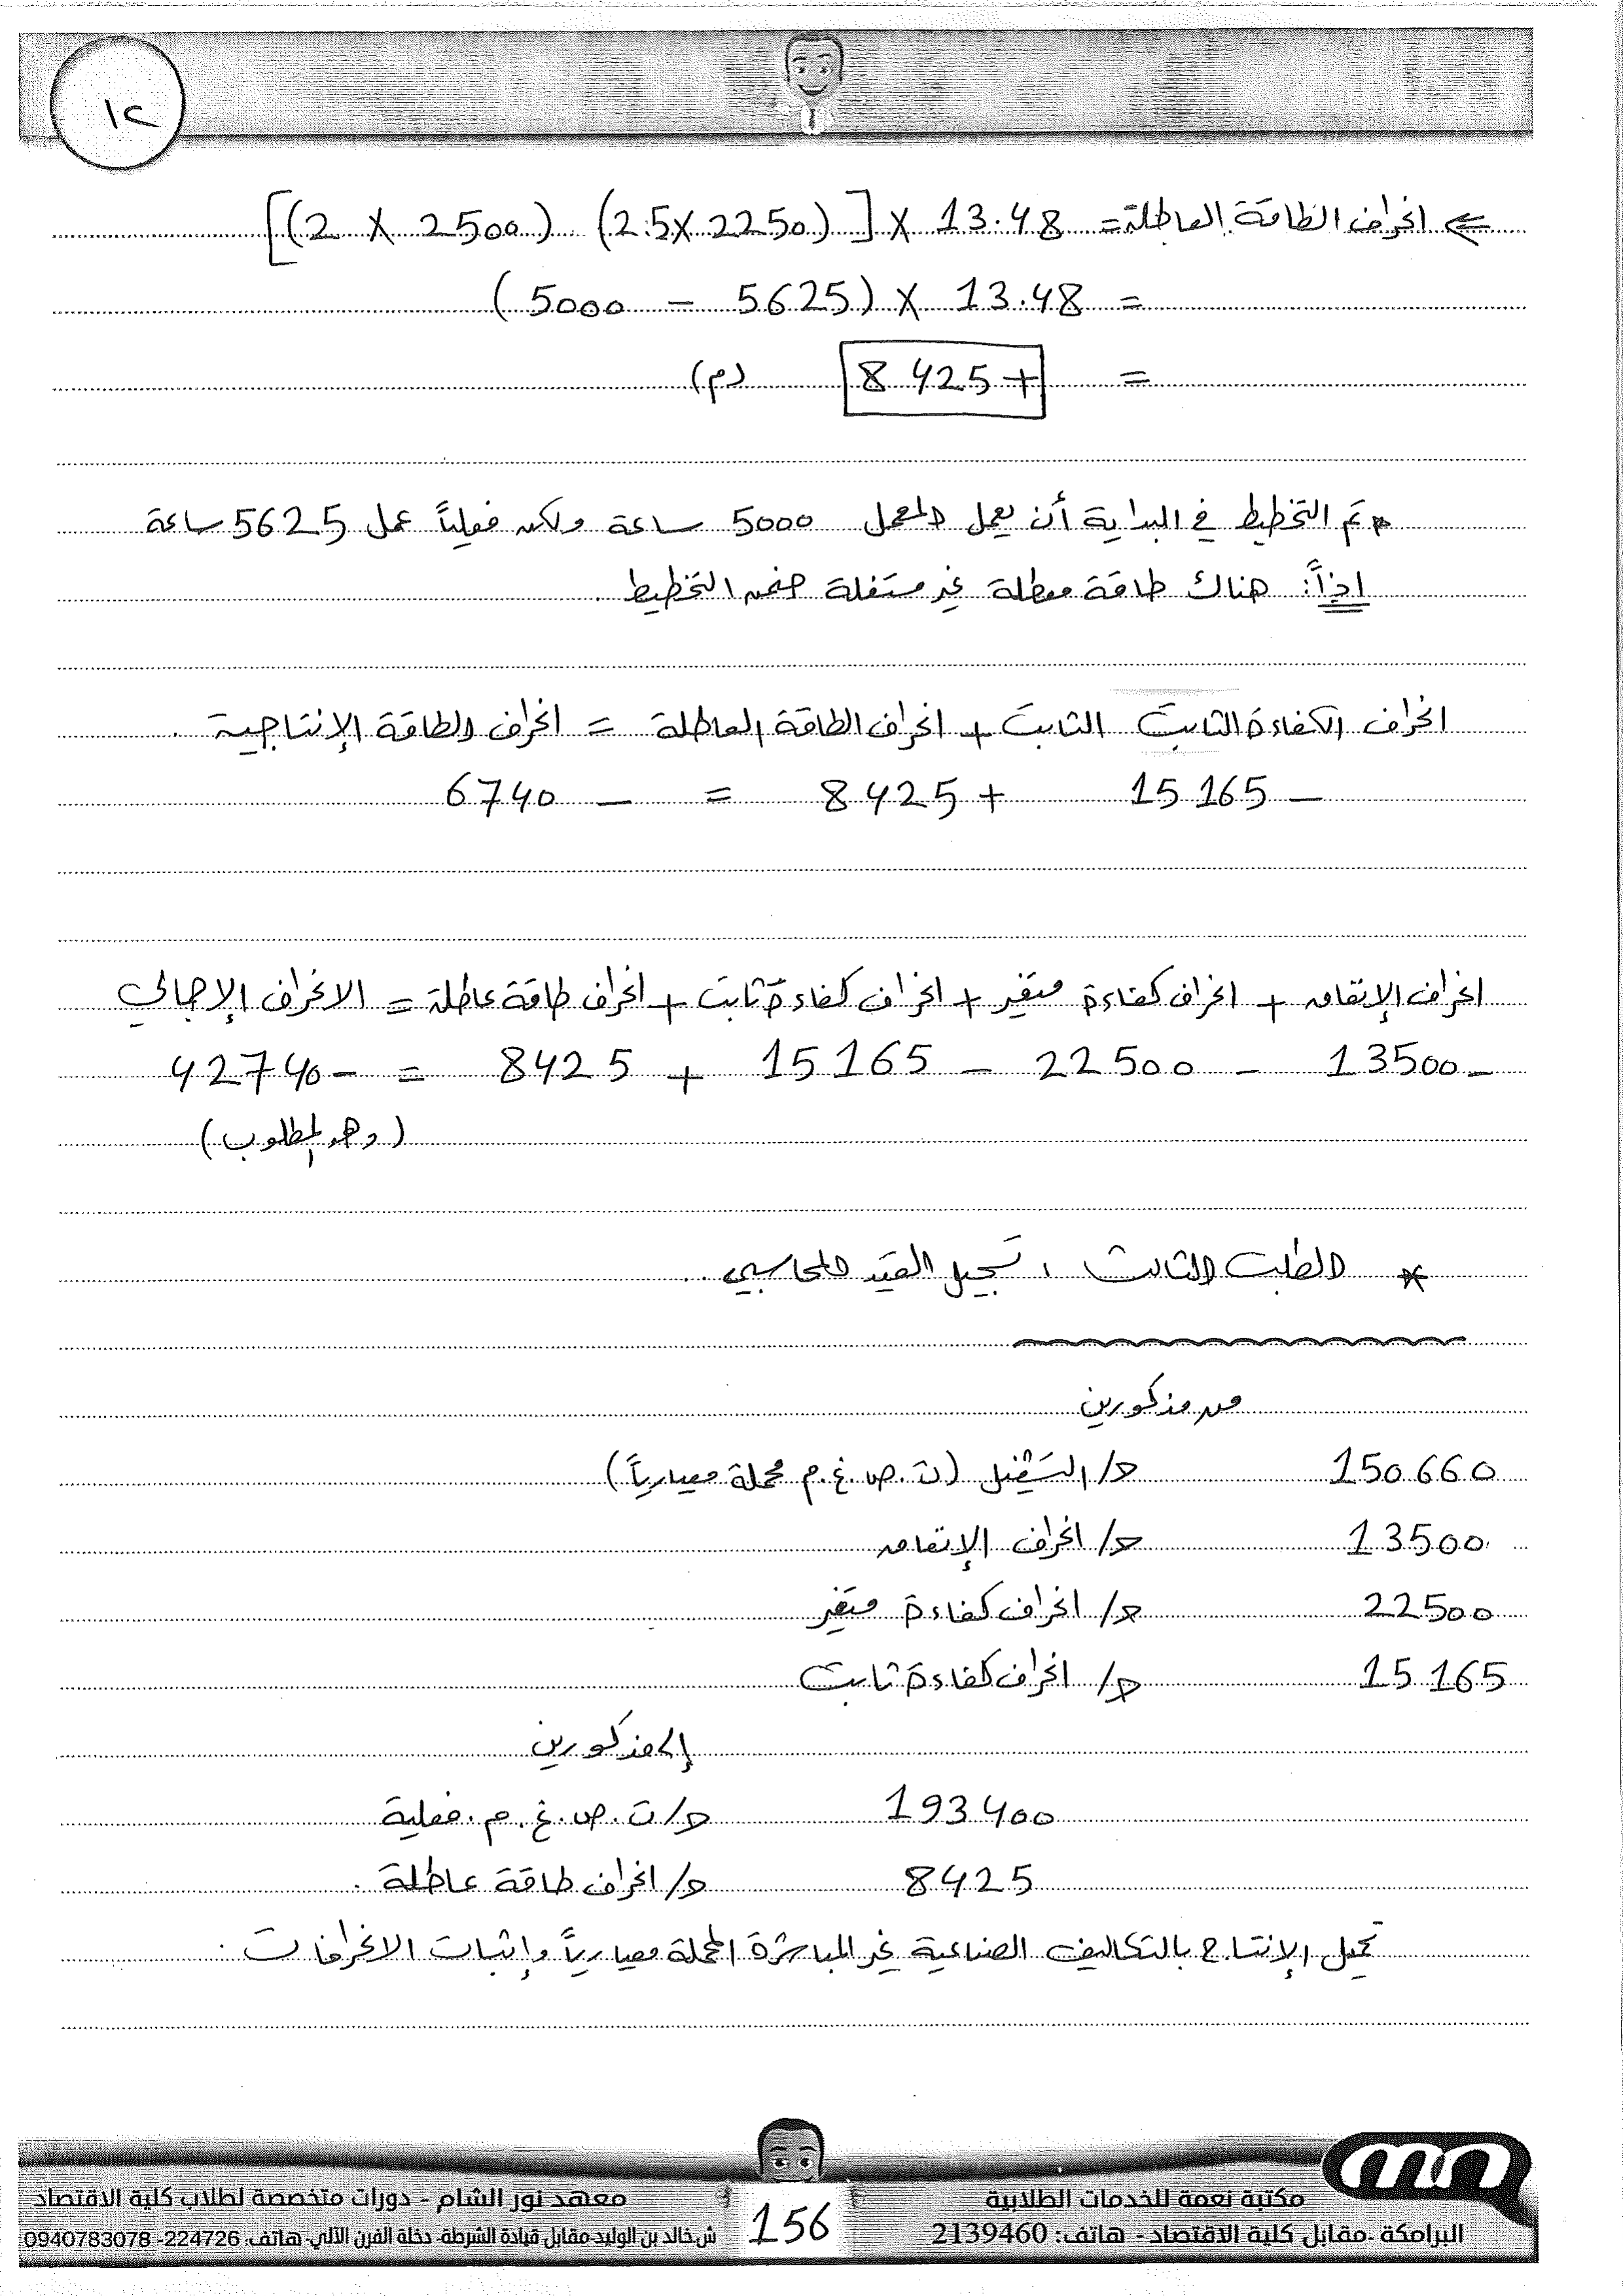 ١٢
⇐ انحراف الطاقة العاطلة = [(2 × 2500) (2.5 × 2250)] × 13.48
= (5000 − 5625) × 13.48
= +8425 (م)
* تم التخطيط في البداية أن يعمل المعمل 5000 ساعة ولكن فعلياً عمل 5625 ساعة
اذاً: هناك طاقة معطلة غير مستغلة ضمن التخطيط.
انحراف الكفاءة الثابت الثابت + انحراف الطاقة العاطلة = انحراف الطاقة الإنتاجية.
− 15165 + 8425 = − 6740
انحراف الإنفاق + انحراف كفاءة متغير + انحراف كفاءة ثابت + انحراف طاقة عاطلة = الانحراف الإجمالي
− 13500 − 22500 − 15165 + 8425 = − 42740
(وهو المطلوب)
* الطلب الثالث: تسجيل القيد المحاسبي..
من مذكورين
150660 ح/ التشغيل (ت.ص.غ.م محملة معيارياً)
13500 ح/ انحراف الإنفاق
22500 ح/ انحراف كفاءة متغير
15165 ح/ انحراف كفاءة ثابت
إلى مذكورين
193400 ح/ ت.ص.غ.م.فعلية
8425 ح/ انحراف طاقة عاطلة.
تحميل الإنتاج بالتكاليف الصناعية غير المباشرة المحملة معيارياً وإثبات الانحرافات.
مكتبة نعمة للخدمات الطلابية
البرامكة -مقابل كلية الاقتصاد - هاتف: 2139460
156
معهد نور الشام - دورات متخصصة لطلاب كلية الاقتصاد
ش.خالد بن الوليد-مقابل قيادة الشرطة- دخلة الفرن الآلي-هاتف: 224726- 0940783078